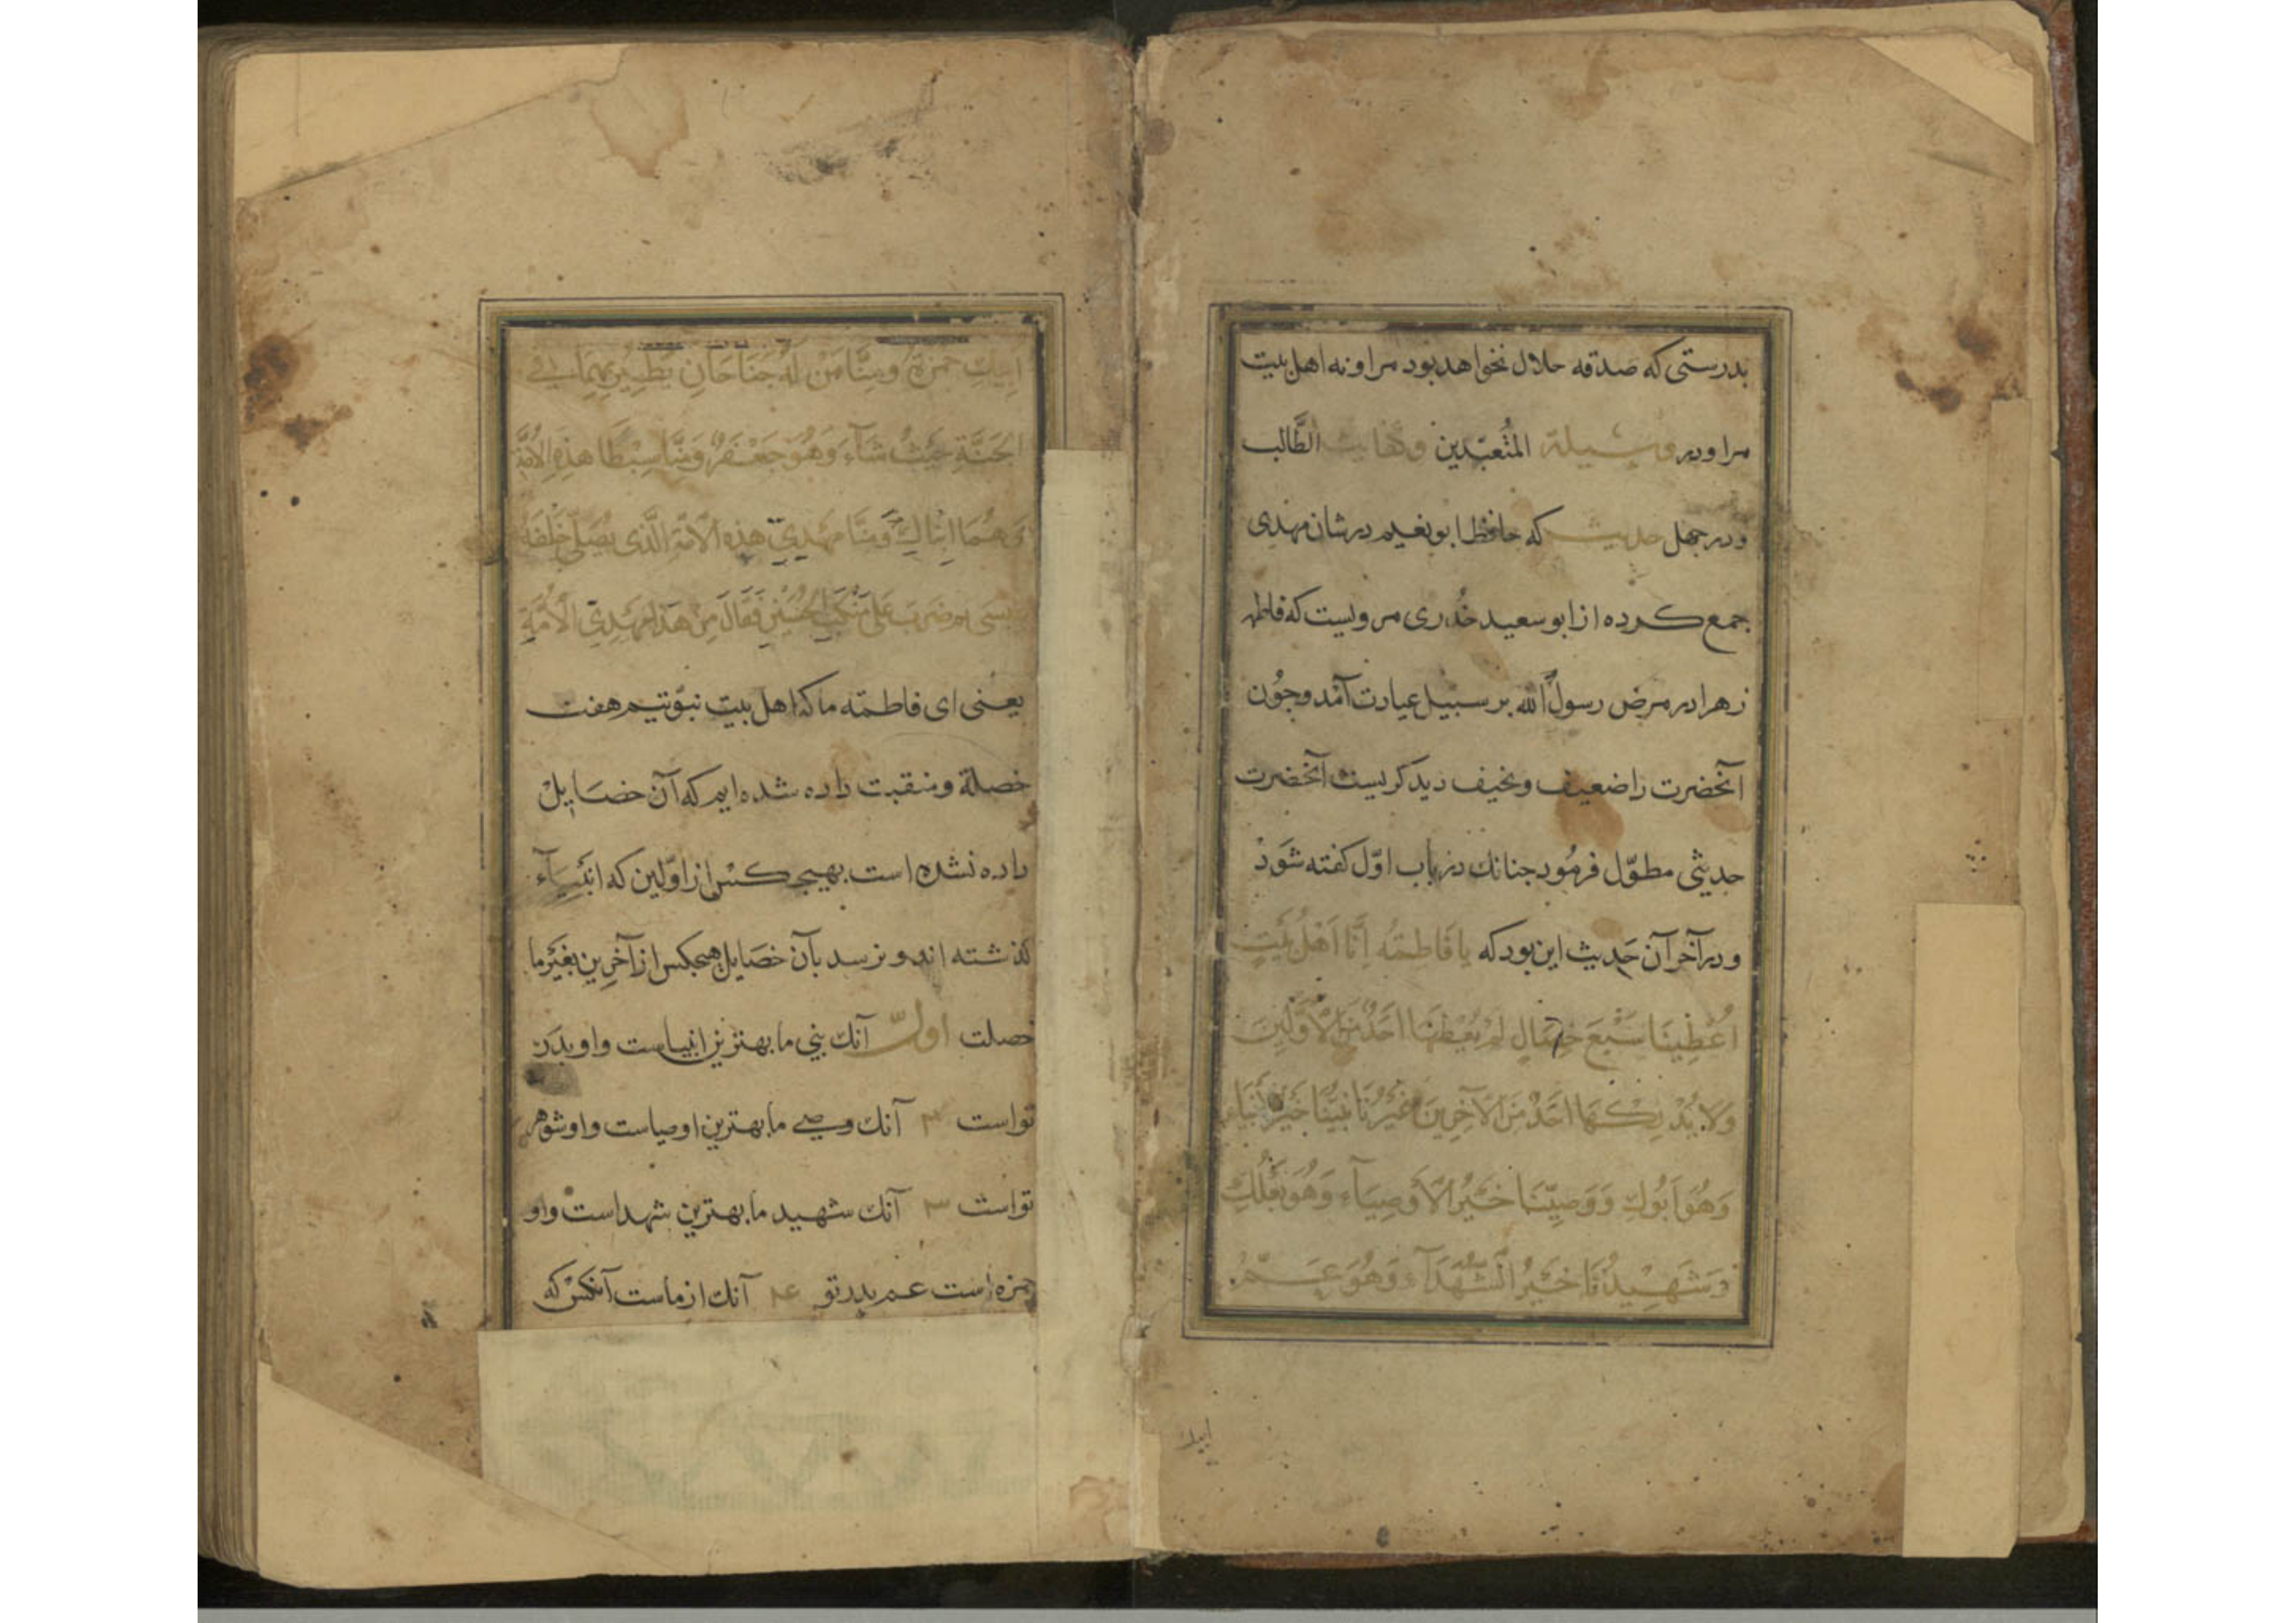 بدرستی که صدقه حلال نخواهد بود مراو نه اهل بیت
مراو در وسیلة المتعبّدین وکفایت الطَّالب
و در چهل حدیث که حافظ ابو نعیم در شان مهدی
جمع کرده از ابو سعید خُدری مرویست که فاطمه
زهرا در مرض رسول الله بر سبیل عیادت آمد و جون
آنحضرت را ضعیف و نحیف دید کریست آنحضرت
حدیثی مطوّل فرمُود جنانك در باب اوّل کفته شود
و در آخر آن حدیث این بود که یا فَاطِمَةُ اِنَّا اَهْلُ بَیْتٍ
اُعْطِینَا سَبْعَ خِصَالٍ لَمْ یُعْطَهَا اَحَدٌ مِنَ الْاَوَّلِینَ
وَلَا یُدْرِکُهَا اَحَدٌ مِنَ الْآخِرِینَ غَیْرُنَا نَبِیُّنَا خَیْرُ الْاَنْبِیَاءِ
وَهُوَ اَبُوكِ وَ وَصِیُّنَا خَیْرُ الْاَوْصِیَآءِ وَهُوَ بَعْلُكِ
وَشَهِیدُنَا خَیْرُ الشُّهَدَآءِ وَهُوَ عَمُّ
ابیك
اَبِیكِ حمزة وَمِنَّا مَنْ لَهُ جَنَاحَانِ یَطِیرُ بِهِمَا فِی
الْجَنَّةِ حَیْثُ شَآءَ وَهُوَ جَعْفَرٌ وَمِنَّا سِبْطَا هذِهِ الْاُمَّةِ
وَهُمَا ابْنَاكِ وَمِنَّا مَهْدِیُّ هذِهِ الْاُمَّةِ الَّذی یُصَلّی خَلْفَهُ
عیسی ثم ضَرَبَ عَلی مَنْکِبِ الْحُسَیْنِ فَقَالَ مِنْ هَذَا مَهْدِیُّ الْاُمَّةِ
یعنی ای فاطمه ما که اهل بیت نبوّتیم هفت
خصلة و منقبت داده شده ایم که آن خصایل
داده نشده است بهیچ کس از اوّلین که انبیآء
کذشته اند و نرسد بآن خصایل هیچکس از آخرین بغیر ما
خصلت اول آنك نبی ما بهترین انبیاست و او بدر
تو است ۲ آنك وصی ما بهترین اوصیاست و او شوهر
تو است ۳ آنك شهید ما بهترین شهداست و او
حمزه است عم بدر تو ۴ آنك از ماست آنکس که